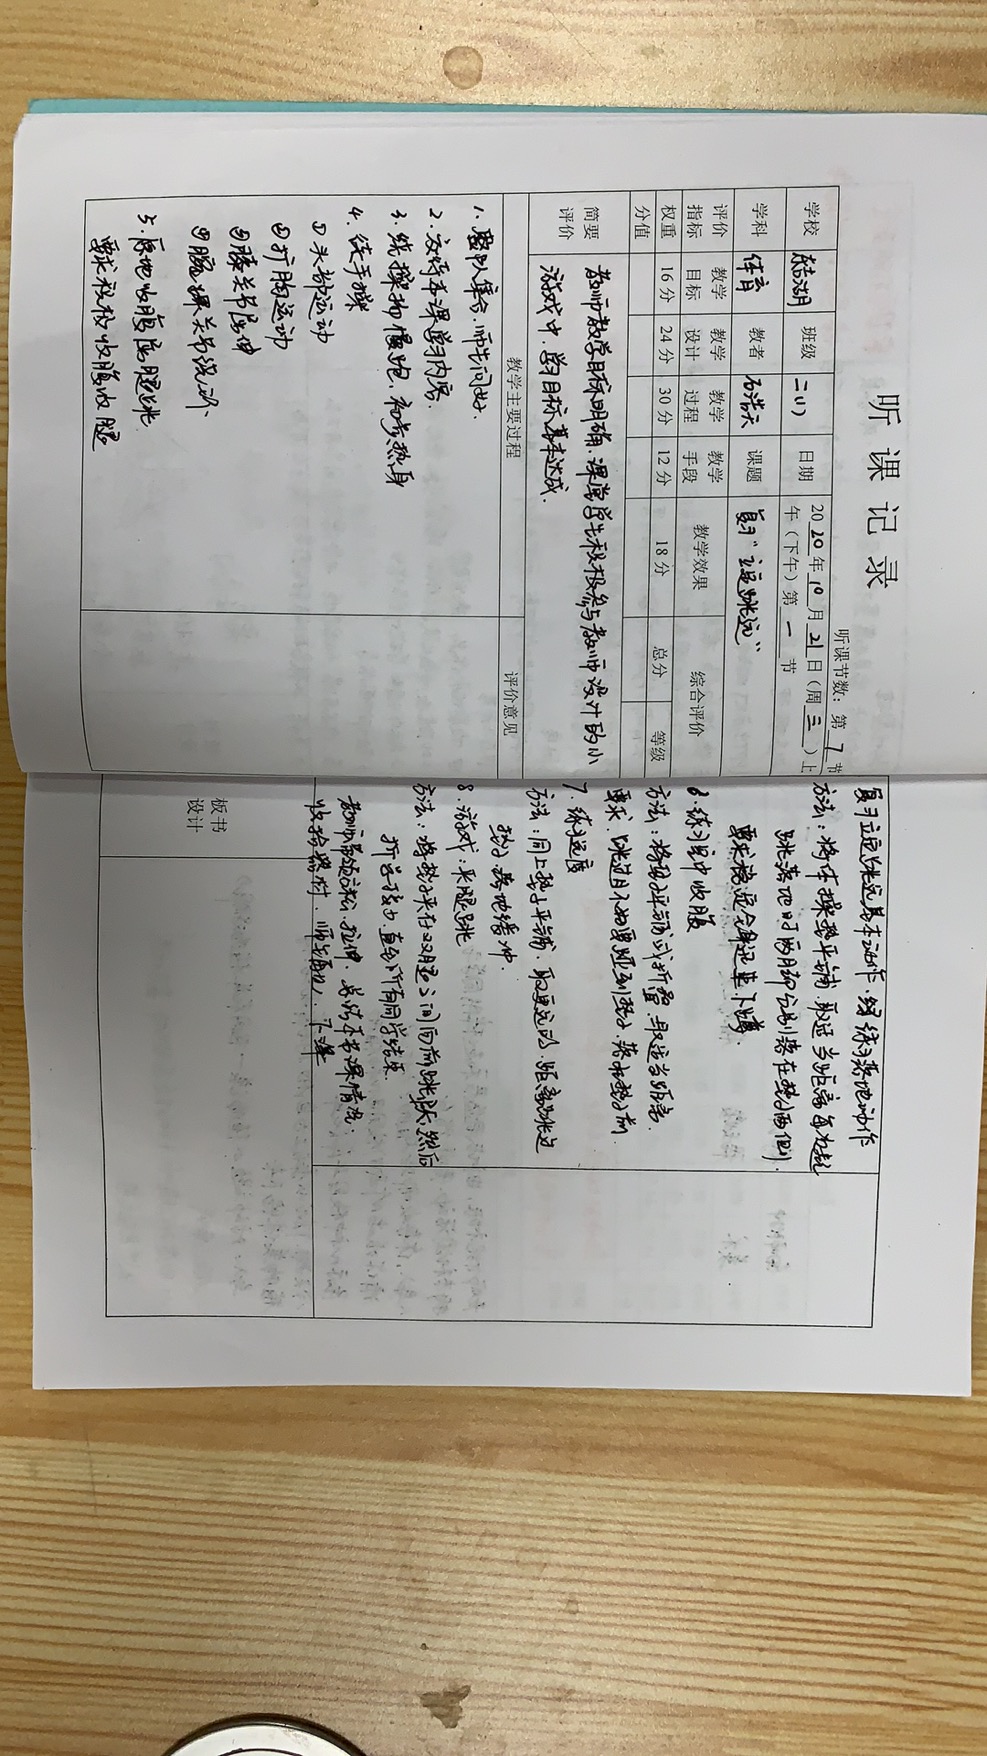 听课记录
听课节数：第 7 节
学校 班级 二（1） 日期 2020年10月21日（周三）上午（下午）第一节
学科 体育 教者 石浩天 课题 复习“立定跳远”
评价指标 教学目标 教学设计 教学过程 教学手段 教学效果 综合评价
权重 16分 24分 30分 12分 18分 总分 等级
分值
简要评价 教师教学目标明确，课堂学生积极参与教师设计的小
游戏中，学习目标基本达成．
教学主要过程 评价意见
1．整队集合，师生问好．
2．宣传本课学习内容．
3．绕操场慢跑，高考热身
4．徒手操
①头部运动
②扩胸运动
③膝关节屈伸
④腕踝关节绕环
5．原地收腹屈腿跳
要求积极收腹收腿
复习立定跳远基本动作，练习落地动作
方法：将体操垫平铺，取适当距离每为起
跳落地时两脚分别落在垫子两侧．
要求稳定
6．练习空中收腹
方法：将垫子平铺或折叠，取适当距离．
要求：跳过且不如果碰到垫子，落在垫子前
7．练习远度
方法：同上垫子平铺，取更远的距离跳过
垫子，落地缓冲．
8．游戏：夹腿跳
方法：将垫子夹在双腿之间向前跳跃，然后
折返接力，直到所有同学结束．
教师带领放松，拉伸，总结本节课情况．
收拾器材，师生再见，下课
板书设计